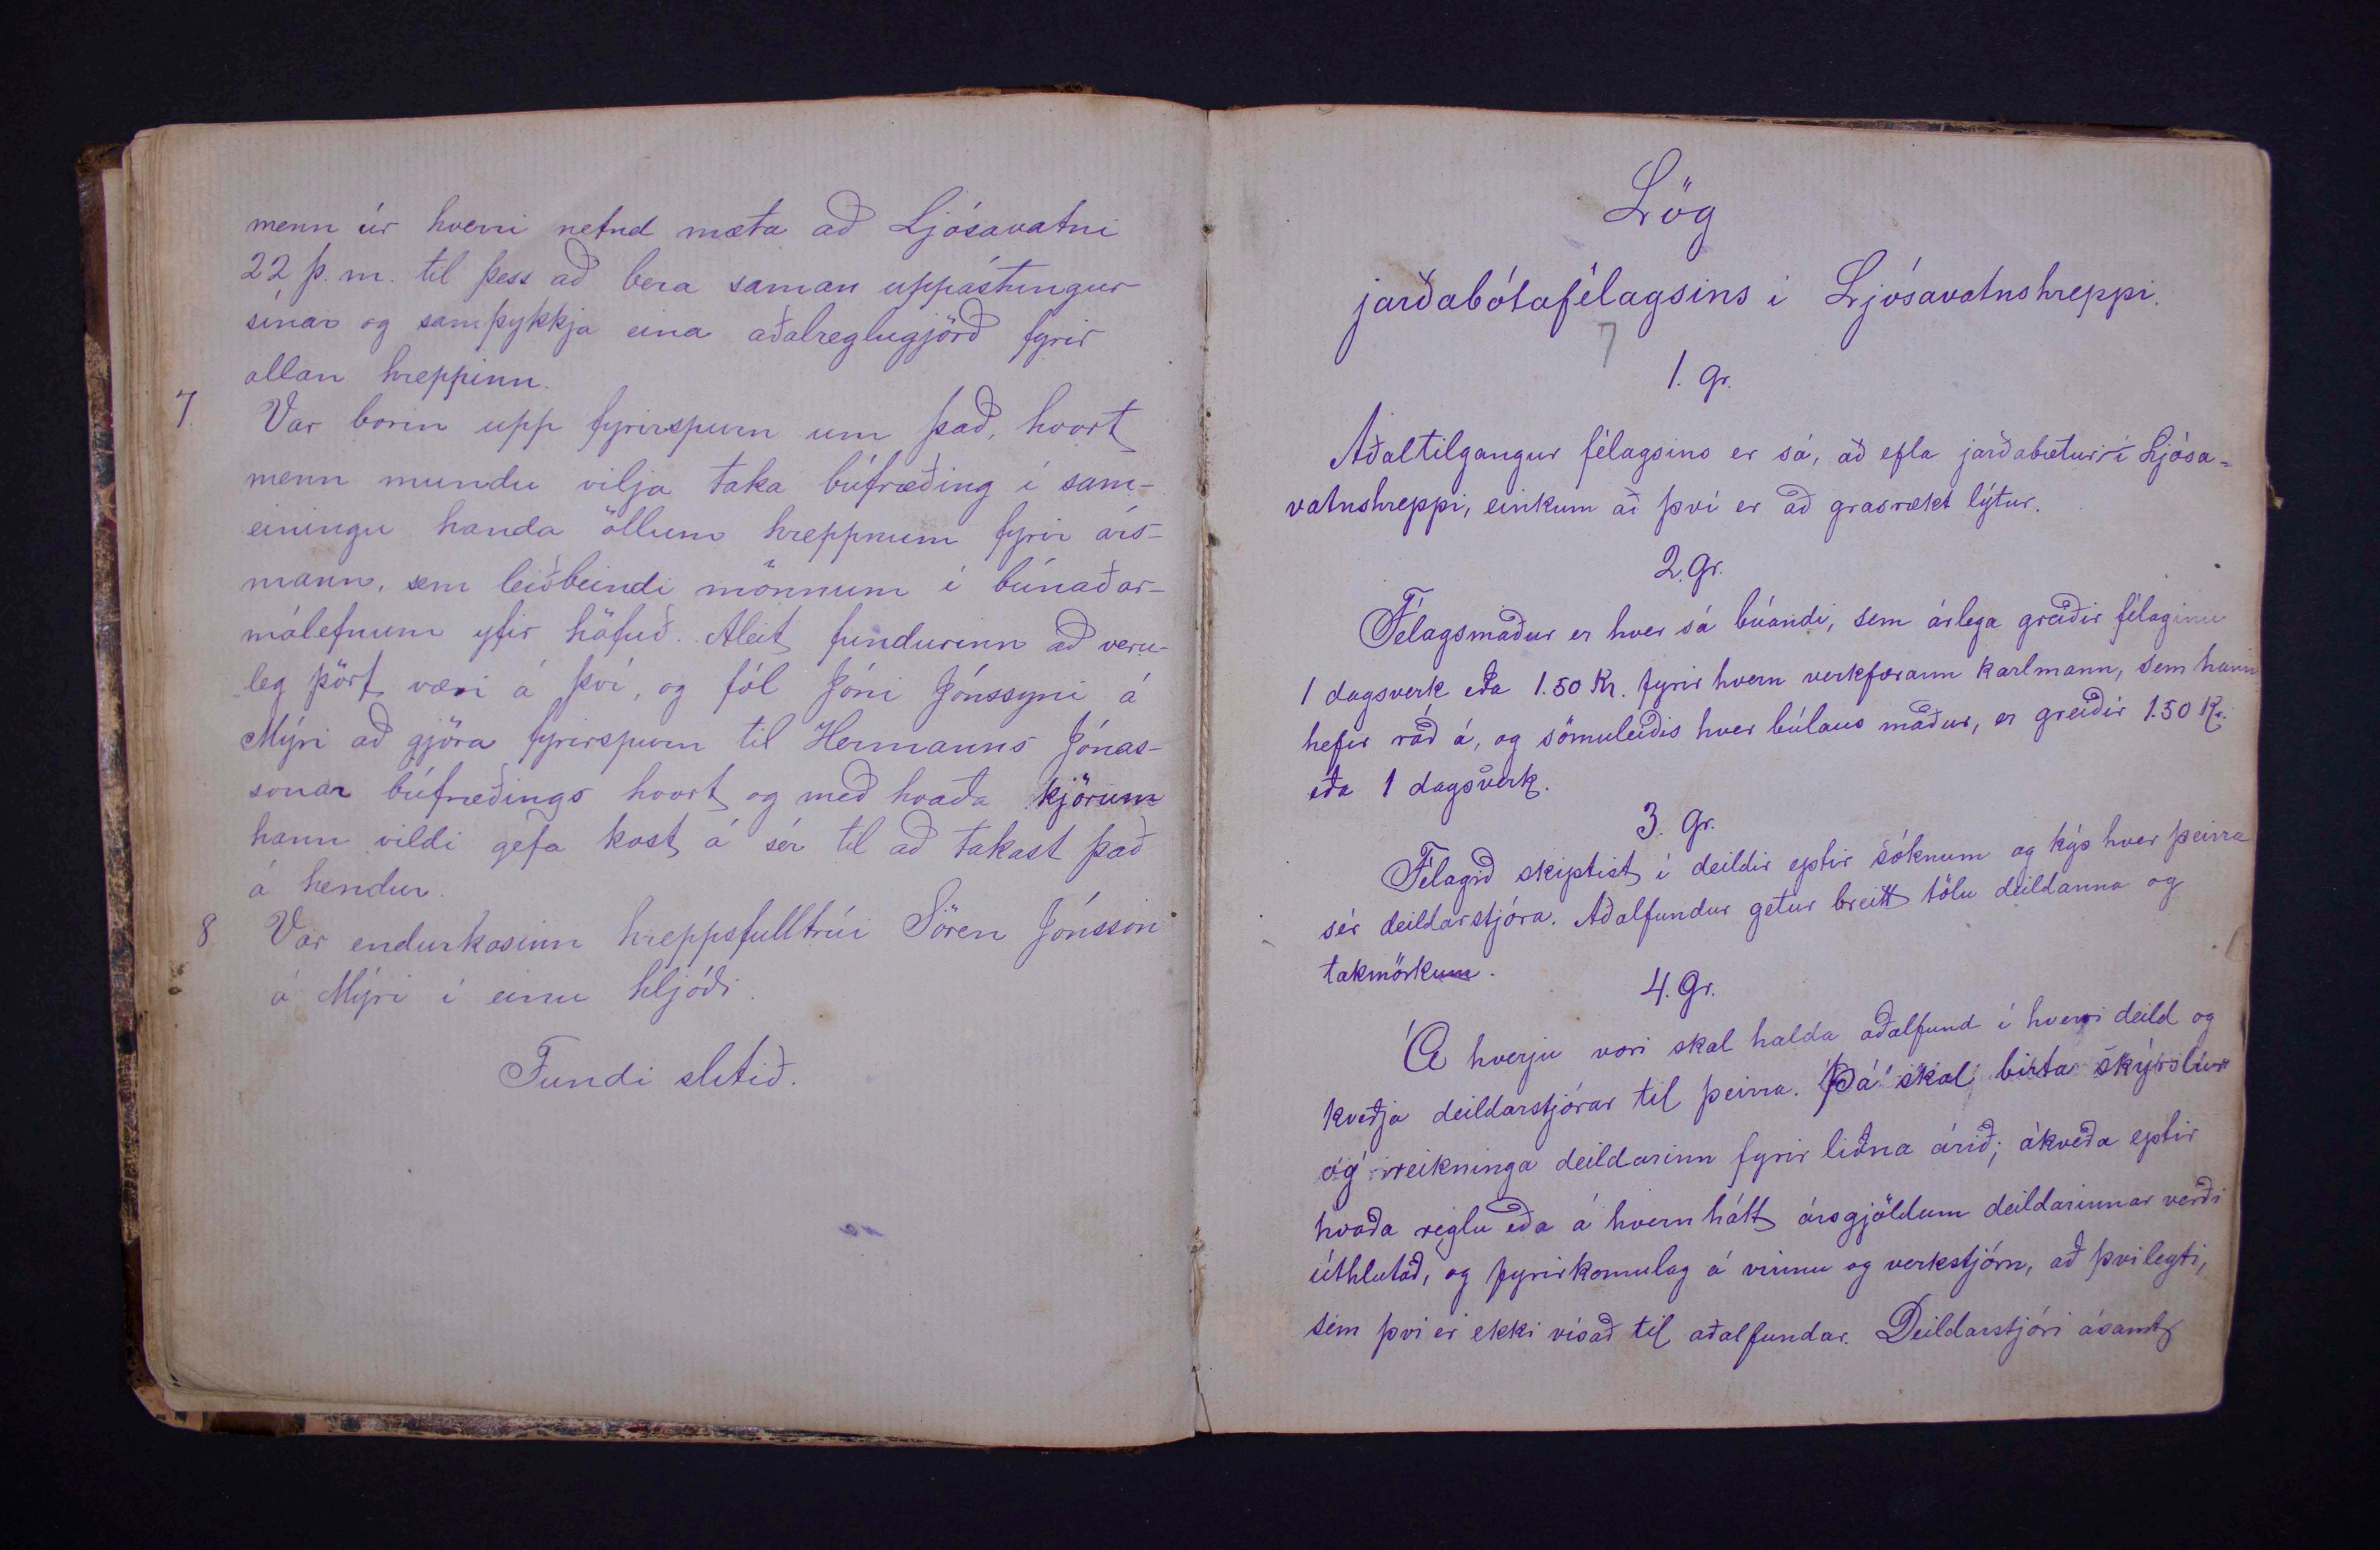 menn úr hverri nefnd mæta að Ljósavatni
22 þ. m. til þess að bera saman uppástungur
sínar og samþykkja eina aðalreglugjörð fyrir
allan hreppinn.
7. Var borin upp fyrirspurn um það, hvort
menn mundu vilja taka búfræðing í sam-
einingu handa öllum hreppnum fyrir árs-
mann, sem leiðbeindi mönnum í búnaðar-
málefnum yfir höfuð. Áleit fundurinn að veru-
leg þörf væri á því, og fól Jóni Jónssyni á
Mýri að gjöra fyrirspurn til Hermanns Jónas-
sonar búfræðings hvort og með hvaða kjörum
hann vildi gefa kost á sér til að takast það
á hendur.
8 Var endurkosinn hreppsfulltrúi Sören Jónsson
á Mýri í einu hljóði.
Fundi slitið.
Lög
jarðabótafélagsins í Ljósavatnshreppi.
7
1. gr.
Aðaltilgangur félagsins er sá, að efla jarðabætur í Ljósa-
vatnshreppi, einkum að því er að grasrækt lýtur.
2. gr.
Félagsmaður er hver sá búandi, sem árlega greiðir félaginu
1 dagsverk eða 1.50 Kr. fyrir hvern verkfærann karlmann, sem hann
hefir ráð á, og sömuleiðis hver búlaus maður, er greiðir 1.50 Kr.
eða 1 dagsverk.
3. gr.
Félagið skiptist í deildir eptir sóknum og kýs hver þeirra
sér deildarstjóra. Aðalfundur getur breitt tölu deildanna og
takmörkum.
4. gr.
Á hverju vori skal halda aðalfund í hverri deild og
kveðja deildarstjórar til þeirra. Þá skal birta skýrslur
og reikninga deildarinn fyrir liðna árið; ákveða eptir
hvaða reglu eða á hvern hátt ársgjöldum deildarinnar verði
úthlutað, og fyrirkomulag á vinnu og verkstjórn, að þvi leyti,
sem þvi er ekki vísað til aðalfundar. Deildarstjóri ásamt